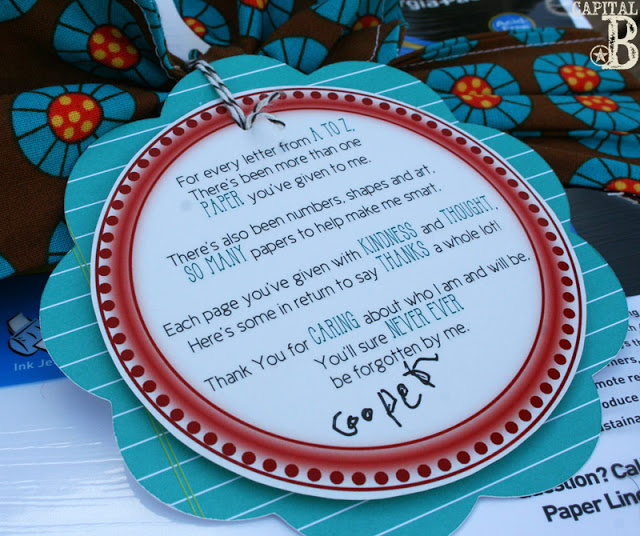 CAPITAL
B
Acid-
For every letter from A TO Z,
There's been more than one
PAPER you've given to me.
There's also been numbers, shapes and art,
SO MANY papers to help make me smart.
Each page you've given with KINDNESS and THOUGHT,
Here's some in return to say THANKS a whole lot!
Thank You for CARING about who I am and will be,
You'll sure NEVER EVER
be forgotten by me.
Cooper
Ink Je
mote re
oduce
ustaina
Question? Cal
Paper Line